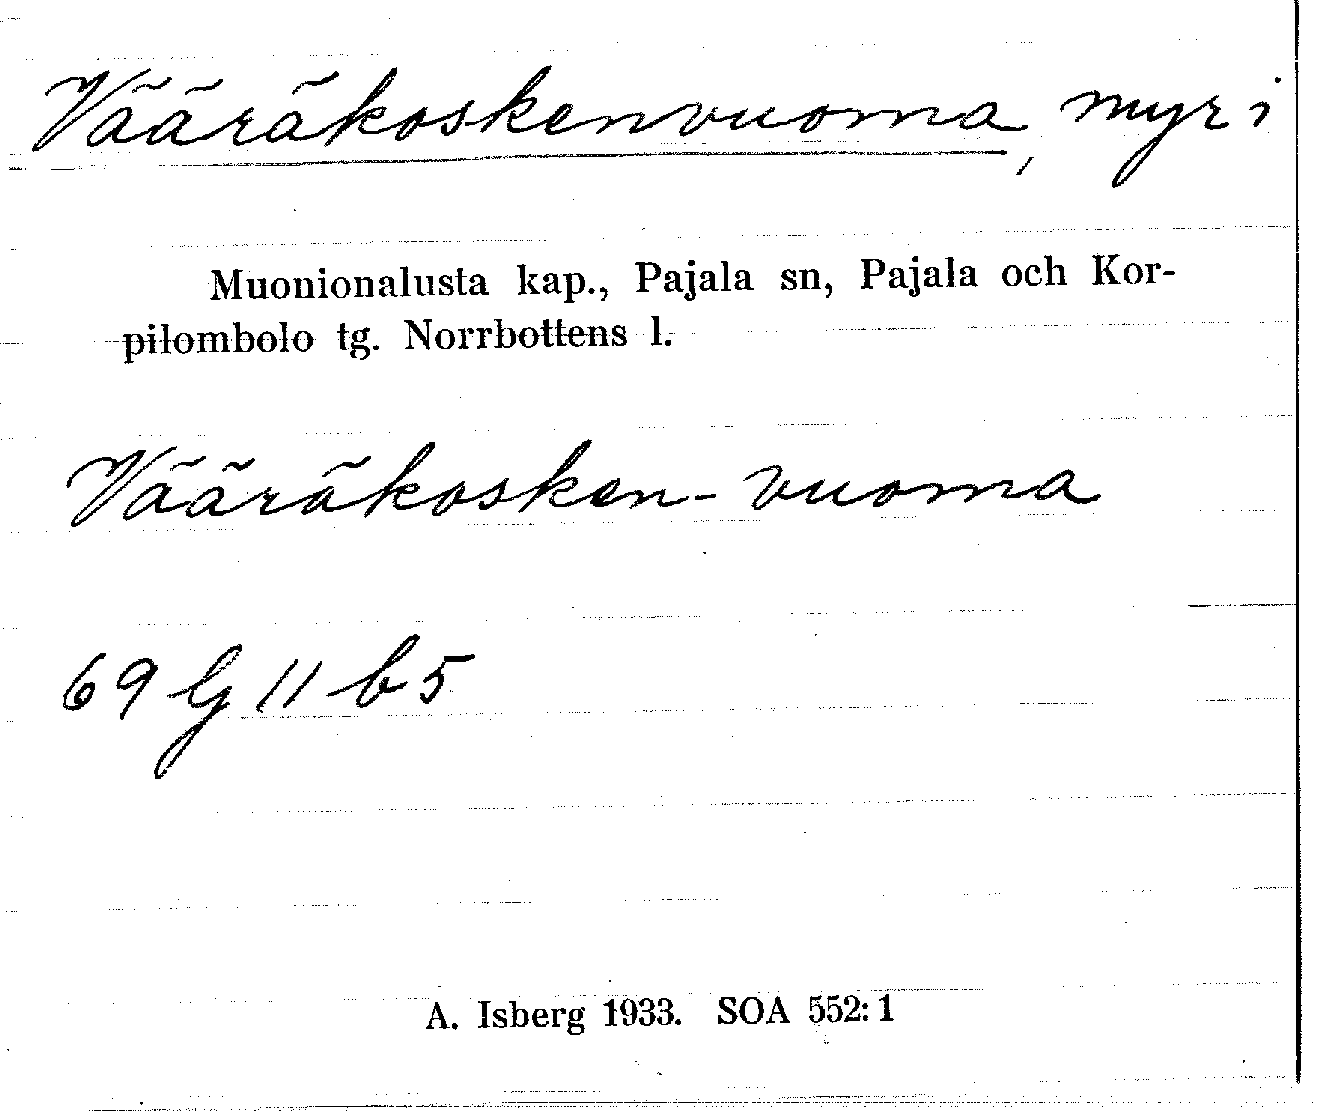 Vääräkoskenvuoma, myr i
Muonionalusta kap., Pajala sn, Pajala och Kor-
pilombolo tg. Norrbottens l.
Vääräkosken-vuoma
69 G 11 b 5
A. Isberg 1933. SOA 552:1